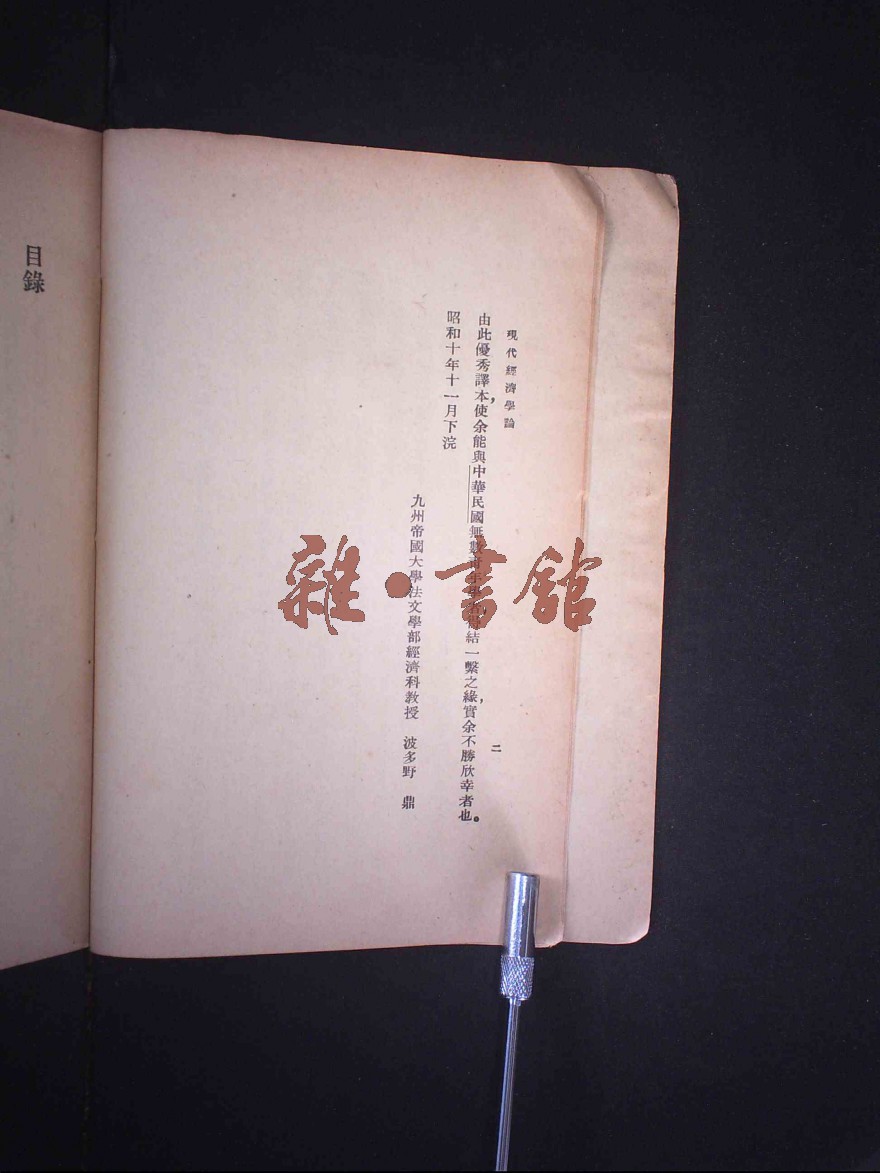 現代經濟學論
二
由此優秀譯本，使余能與中華民國無數青年學者得結一繫之緣，實余不勝欣幸者也。
昭和十年十一月下浣
九州帝國大學法文學部經濟科教授　波多野　鼎
目錄
雜·書館